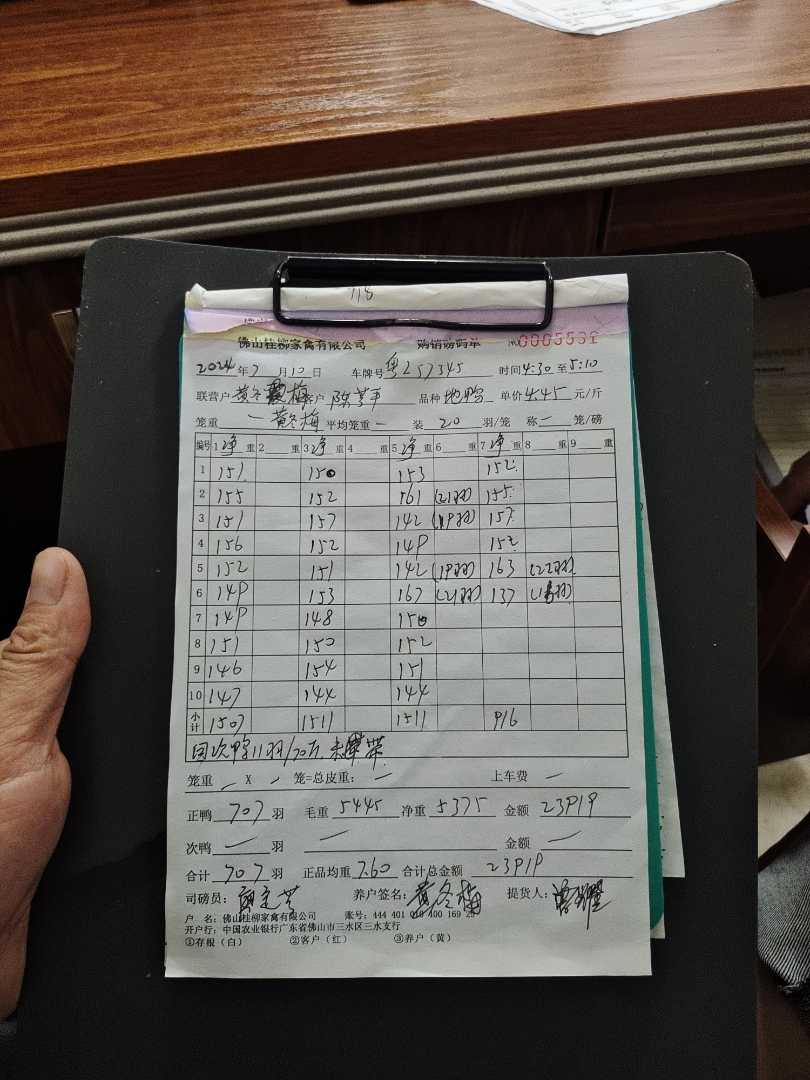 118
佛山桂柳家禽有限公司 购销磅码单 №0005531
2024年7月10日 车牌号 粤Z57345 时间4:30至5:10
联营户 黄冬梅 客户 品种 地鸭 单价4.45元/斤
笼重 一 黄冬梅 平均笼重 一 装 20 羽/笼 称 一 笼/磅
编号 1净重 2 重 3净重 4 重 5净重 6 重 7净重 8 重 9 重
1 151 150 153 152
2 155 152 161 (21羽) 155
3 151 157 142 (19羽) 157
4 156 152 149 152
5 152 151 142 (19羽) 163 (22羽)
6 149 153 167 (21羽) 137 (18羽)
7 149 148 150
8 151 150 152
9 146 154 151
10 147 144 144
小计 1507 1511 1511 916
回次鸭11羽/70斤
笼重 一 X 一 笼=总皮重: 一 上车费 一
正鸭 707 羽 毛重 5445 净重 5375 金额 23919
次鸭 一 羽 一 金额 一
合计 707 羽 正品均重 7.60 合计总金额 23919
司磅员: 养户签名: 黄冬梅 提货人:
户 名: 佛山桂柳家禽有限公司 账号: 444 401 010 400 169 26
开户行: 中国农业银行广东省佛山市三水区三水支行
①存根(白) ②客户(红) ③养户(黄)